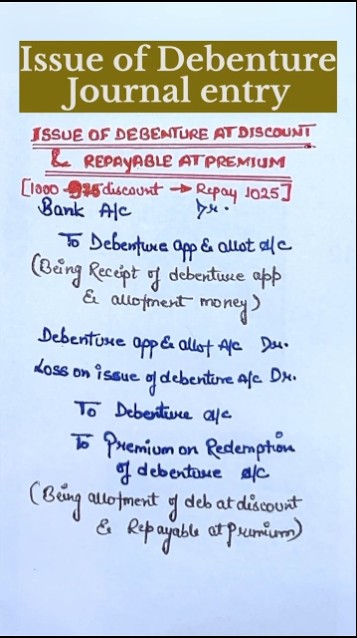 Issue of Debenture
Journal entry
ISSUE OF DEBENTURE AT DISCOUNT
& REPAYABLE AT PREMIUM
[1000 975 discount → Repay 1025]
Bank A/c Dr.
To Debenture app & allot a/c
(Being Receipt of debenture app
& allotment money)
Debenture app & allot A/c Dr.
Loss on issue of debenture A/c Dr.
To Debenture a/c
To Premium on Redemption
of debenture a/c
(Being allotment of deb at discount
& Repayable at premium)